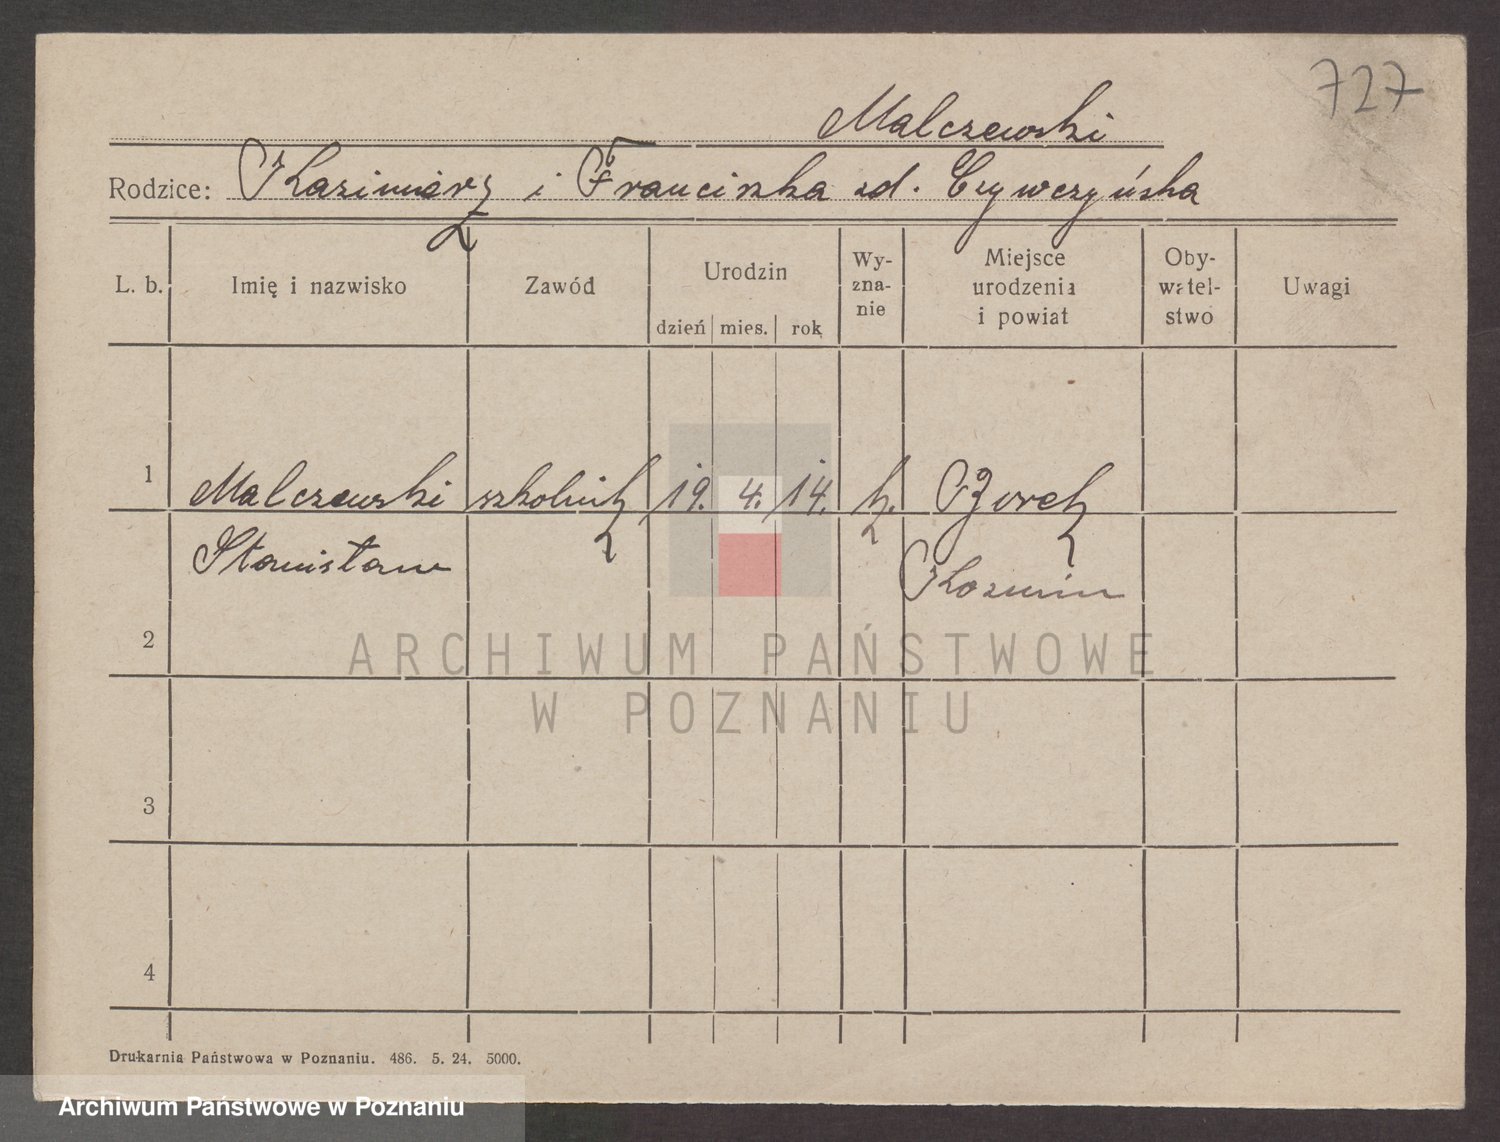 727
Malczewski
Rodzice: Kazimierz i Franciszka zd. Czywczyńska
L. b. Imię i nazwisko Zawód Urodzin dzień mies. rok Wy-zna-nie Miejsce urodzenia i powiat Oby-watel-stwo Uwagi
1 Malczewski szkolnik 19. 4. 14. k. Borek
Stanisław Kozmin
2
ARCHIWUM PAŃSTWOWE
W POZNANIU
3
4
Drukarnia Państwowa w Poznaniu. 486. 5. 24. 5000.
Archiwum Państwowe w Poznaniu